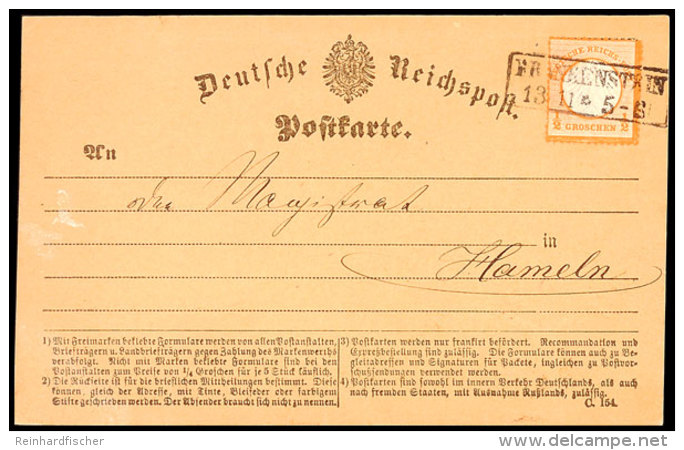 Deutsche Reichspost.
ΤSCHE REICHS
FRANKENSTEIN
13 11 5-6
1/2 GROSCHEN 1/2
Postkarte.
An
den Magistrat
in
Hameln
1) Mit Freimarken beklebte Formulare werden von allen Postanstalten,
Briefträgern u. Landbriefträgern gegen Zahlung des Markenwerths
verabfolgt. Nicht mit Marken beklebte Formulare sind bei den
Postanstalten zum Preise von 1/4 Groschen für je 5 Stück käuflich.
2) Die Rückseite ist für die brieflichen Mittheilungen bestimmt. Diese
können, gleich der Adresse, mit Tinte, Bleifeder oder farbigem
Stifte geschrieben werden. Der Absender braucht sich nicht zu nennen.
3) Postkarten werden nur frankirt befördert. Recommandation und
Expreßbestellung sind zulässig. Die Formulare können auch zu Be-
gleitadressen und Signaturen für Packete, ingleichen zu Postvor-
schußsendungen verwendet werden.
4) Postkarten sind sowohl im innern Verkehr Deutschlands, als auch
nach fremden Staaten, mit Ausnahme Rußlands, zulässig.
C. 154.
Reinhardfischer
delcampe.net